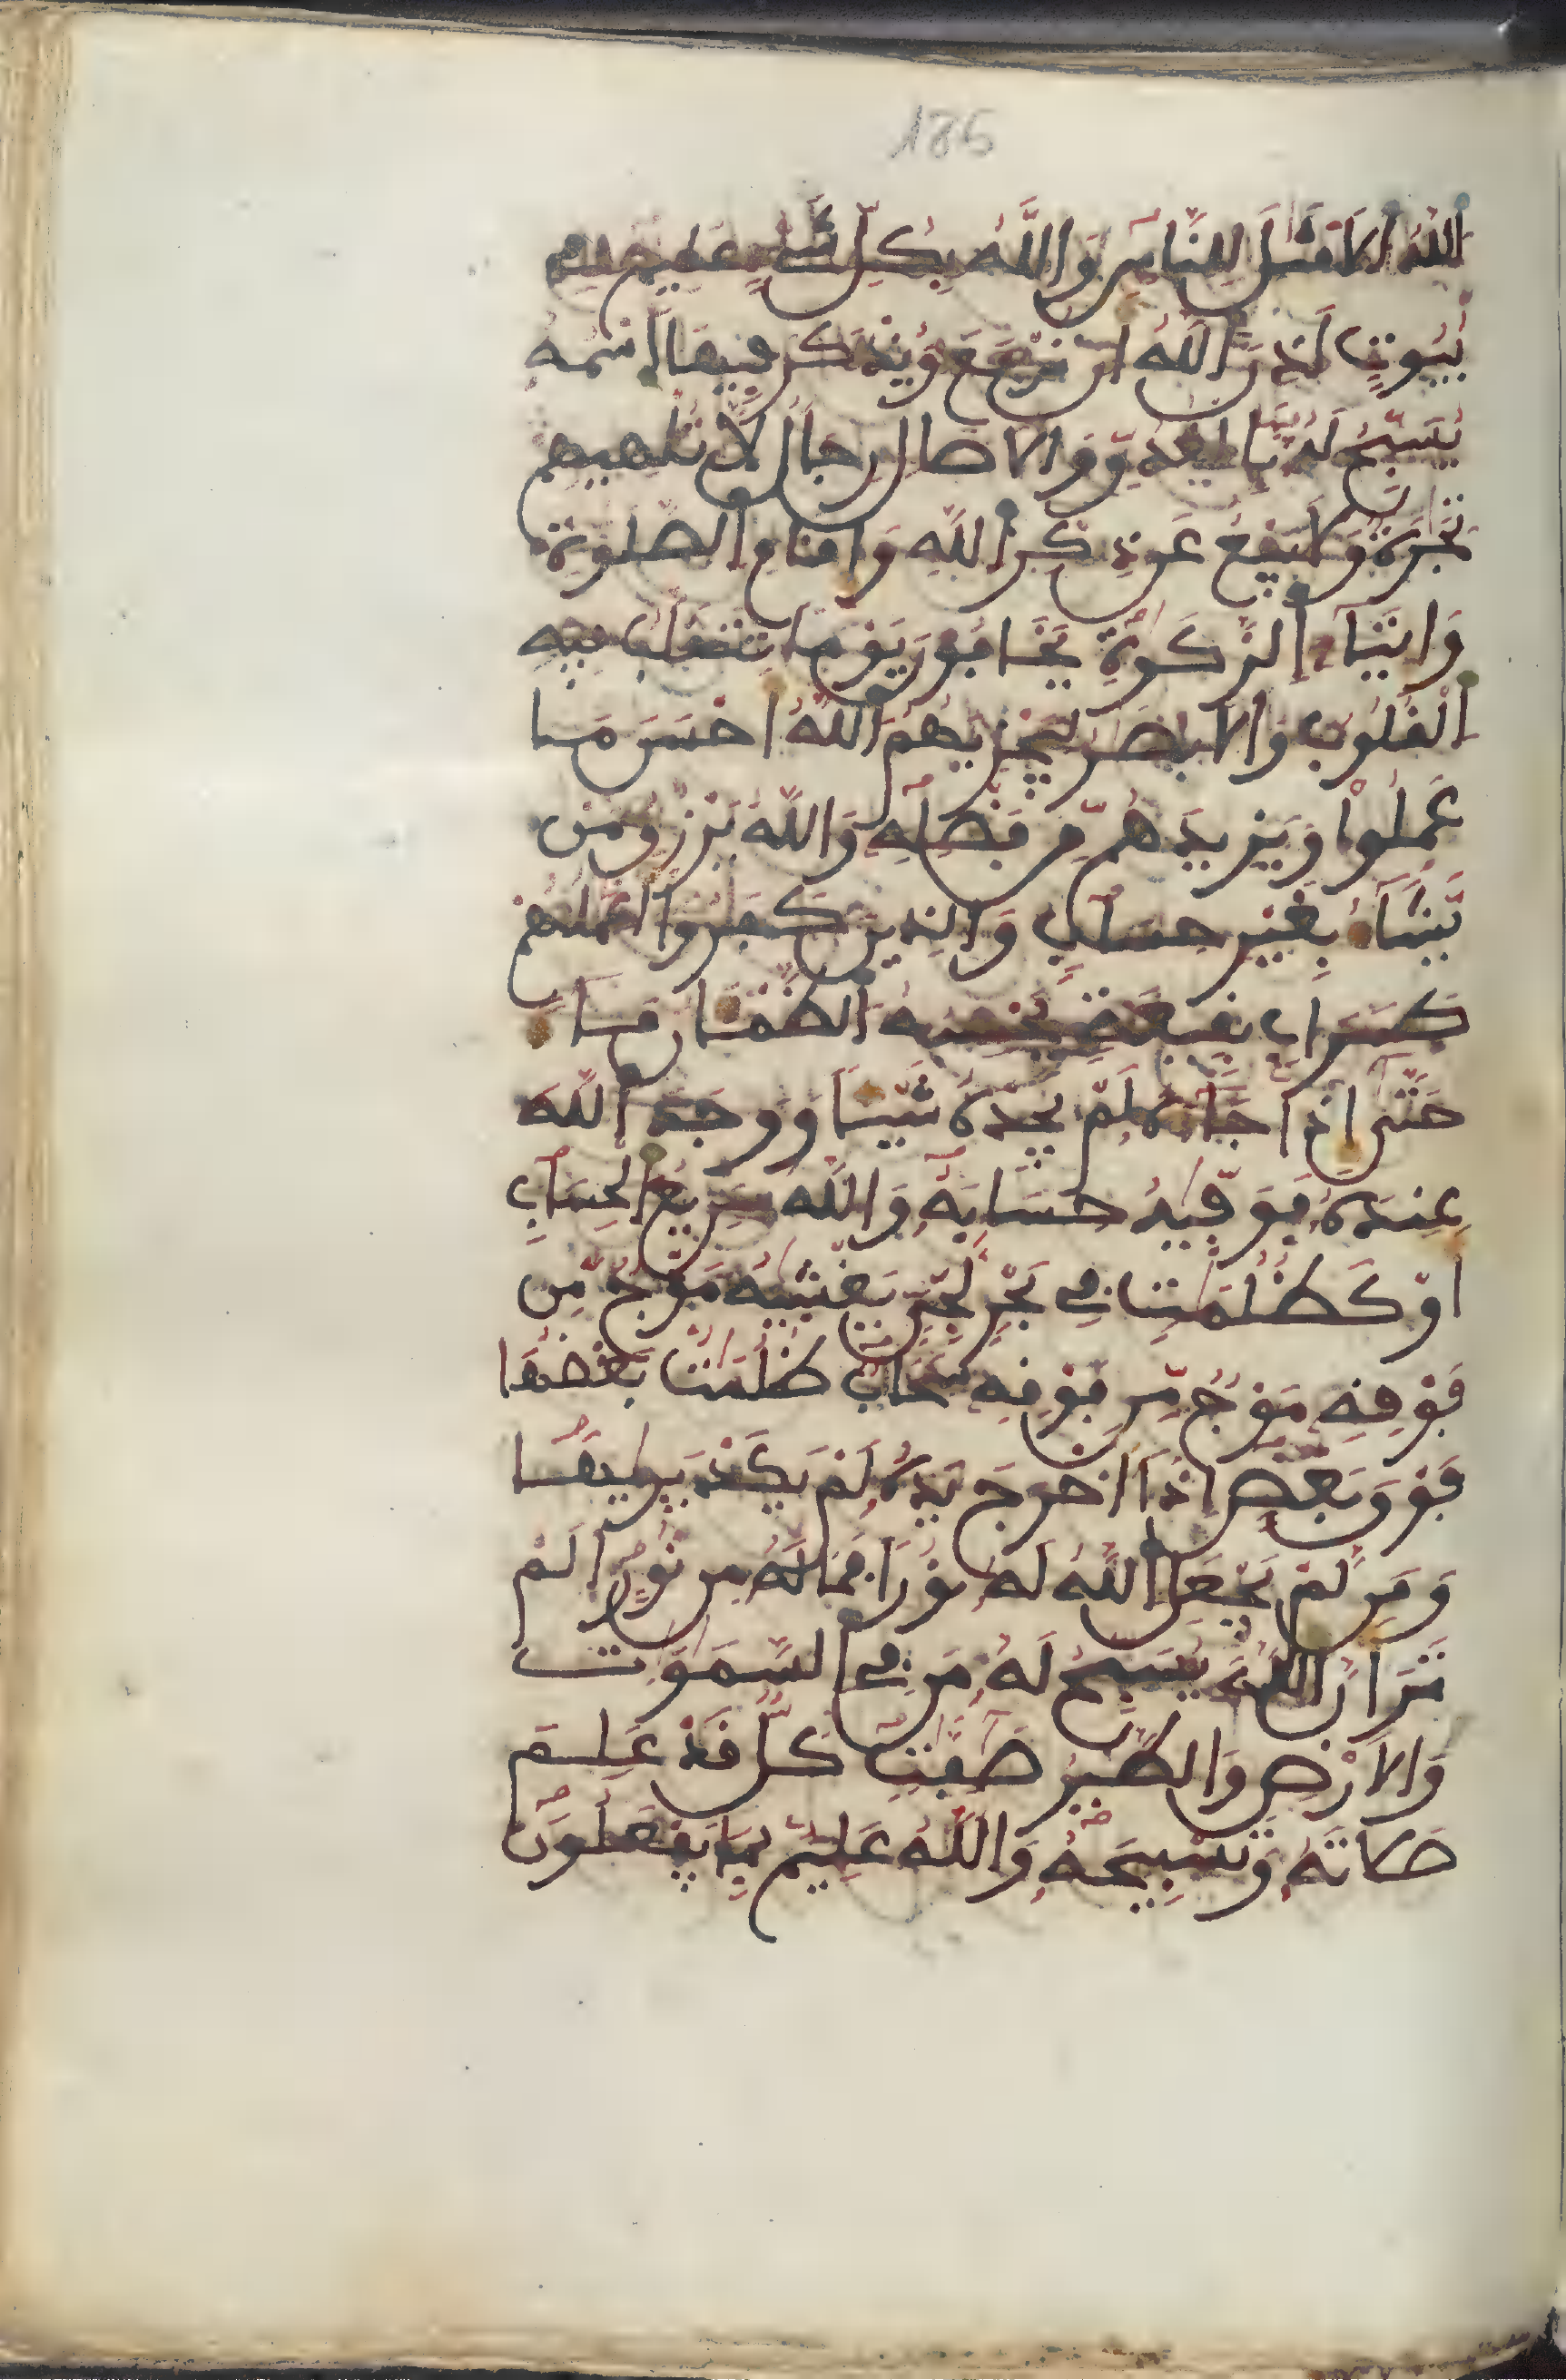 186
اللَّهُ الاَمْثَلَ لِلنَّاسِ وَاللَّهُ بِكُلِّ شَيْءٍ عَلِيمٌ فِي
بُيُوتٍ اَذِنَ اَللَّهُ أَن تُرْفَعَ وَيُذْكَرَ فِيهَا اَسْمُهُ
يُسَبِّحُ لَهُ بِالْغُدُوِّ وَالاَصَالِ رِجَالٌ لاَّ تُلْهِيهِمْ
تِجَرَةٌ وَلاَ بَيْعٌ عَن ذِكْرِ اللَّهِ وَإِقَامِ الصَّلَوٰةِ
وَإِيتَآءِ الزَّكَوٰةِ يَخَافُونَ يَوْماً تَتَقَلَّبُ فِيهِ
الْقُلُوبُ وَالاَبْصَرُ لِيَجْزِيَهُمُ اللَّهُ أَحْسَنَ مَا
عَمِلُوا وَيَزِيدَهُم مِّن فَضْلِهِ وَاللَّهُ يَرْزُقُ مَنْ
يَّشَآءُ بِغَيْرِ حِسَابٍ وَالذِينَ كَفَرُوا أَعْمَلُهُمْ
كَسَرَابٍ بِقِيعَةٍ يَحْسِبُهُ الظَّمْئَانُ مَآءً
حَتَّىٰ إِذَا جَآءَهُ لَمْ يَجِدْهُ شَيْئاً وَوَجَدَ اللَّهَ
عِندَهُ فَوَفَّيٰهُ حِسَابَهُ وَاللَّهُ سَرِيعُ الْحِسَابِ
أَوْ كَظُلُمَٰتٍ فِي بَحْرٍ لُّجِّيٍّ يَغْشَيٰهُ مَوْجٌ مِّن
فَوْقِهِ مَوْجٌ مِّن فَوْقِهِ سَحَابٌ ظُلُمَٰتٌ بَعْضُهَا
فَوْقَ بَعْضٍ إِذَا أَخْرَجَ يَدَهُ لَمْ يَكَدْ يَرَيٰهَا
وَمَن لَّمْ يَجْعَلِ اللَّهُ لَهُ نُوراً فَمَا لَهُ مِن نُّورٍ أَلَمْ
تَرَ أَنَّ اللَّهَ يُسَبِّحُ لَهُ مَن فِي السَّمَٰوَٰتِ
وَالاَرْضِ وَالطَّيْرُ صَٰٓفَّٰتٍ كُلٌّ قَدْ عَلِمَ
صَلاَتَهُ وَتَسْبِيحَهُ وَاللَّهُ عَلِيمٌ بِمَا يَفْعَلُونَ